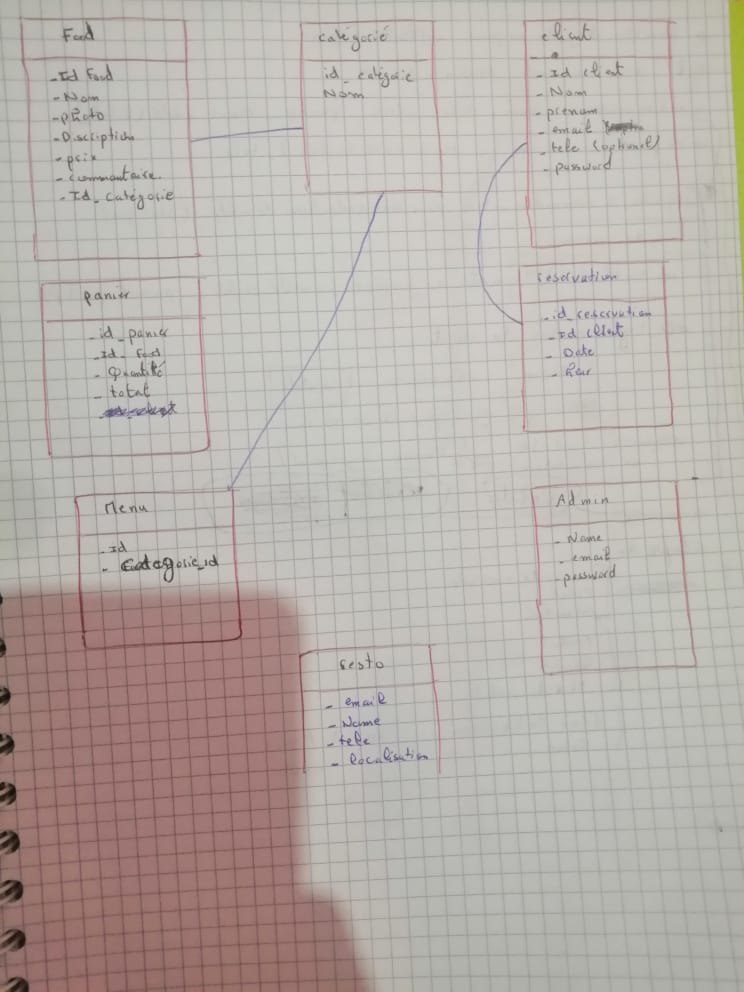 Food
- Id Food
- Nom
- photo
- Discription
- prix
- Commantaire.
- Id_ catégorie
catégorié
id_ catégorie
Nom
client
- Id client
- Nom
- prenom
- email
- tele (optionel)
- password
panier
- id_panier
- Id_ Food
- Quantité
- total
reservation
- id_reservation
- Id client
- Date
- heur
Menu
- Id
- Categorie_id
Admin
- Name
- email
- password
resto
- email
- Name
- tele
- localisation